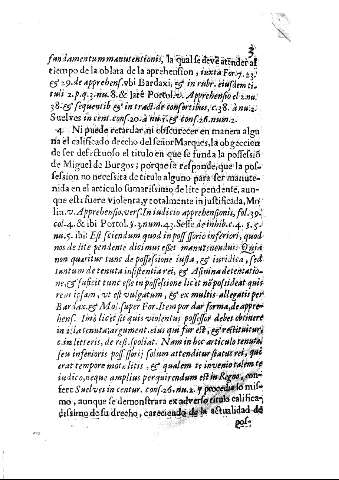 3
fundamentum manutensionis, la qual se deve atender al
tiempo de la oblata de la aprehension, iuxta For. 7. 23.
es 29. de aprehens. vbi Bardaxi, es in rubr. eiusdem ti-
tuli 2. p. q. 3. nu. 8. & Iate Portol. v. Apprehensio el 2. nu.
38. es sequentib es in tract. de consortibus, c. 38. à nu. 2.
Suelves in cent. cons. 20. à nu. 7. es cons. 26. num. 2.
4. Ni puede retardar, ni obscurecer en manera algu
na el calificado derecho del señor Marques, la obgeccion
de ser defectuoso el titulo en que se funda la possessiõ
de Miguel de Burgos; porque se responde, que la pos-
session no necessita de titulo alguno para ser manute-
nida en el articulo sumarissimo de lite pendente, aun-
que esta fuere violenta, y totalmente injustificada, Mo
lin. v. Apprehensio, vers. In iudicio apprehensionis, fol. 39.
col. 4. & ibi Portol. §. 3. num. 43. Sesse de inhib. c. 4. §. 5.
nu. 5. ibi: Est sciendum quod in possessorio inferiori, quod
nos de lite pendente dicimus esset manutenendus: Quia
non quæritur tunc de possessione iusta, es iuridica, sed
tantum de tenuta insistentia rei, es Asinina detentatio-
ne, es sufficit tunc esse in possessione licet nõ possideat quis
rem ipsam, vt est vulgatum, es ex multis allegatis per
Bardax. es Mol. super For. Item por dar forma, de appre-
hens. Imò licet sit quis violentus possessor debet obtinere
in ista tenuta, argument. eius qui fur est, es restituitur,
c. in litteris, de rest. spoliat. Nam in hoc articulo tenutæ
seu inferioris possessorij solum attenditur status rei, qui
erat tempore motæ litis, es qualem te invenio talem te
iudico, neque amplius perquirendum est in Regno, con-
fiere Suelves in centur. cons. 26. nu. 2. y procedia lo mis-
mo, aunque se demonstrara ex adverso titulo califica-
dissimo de su drecho, careciendo de la actualidad de
pos-